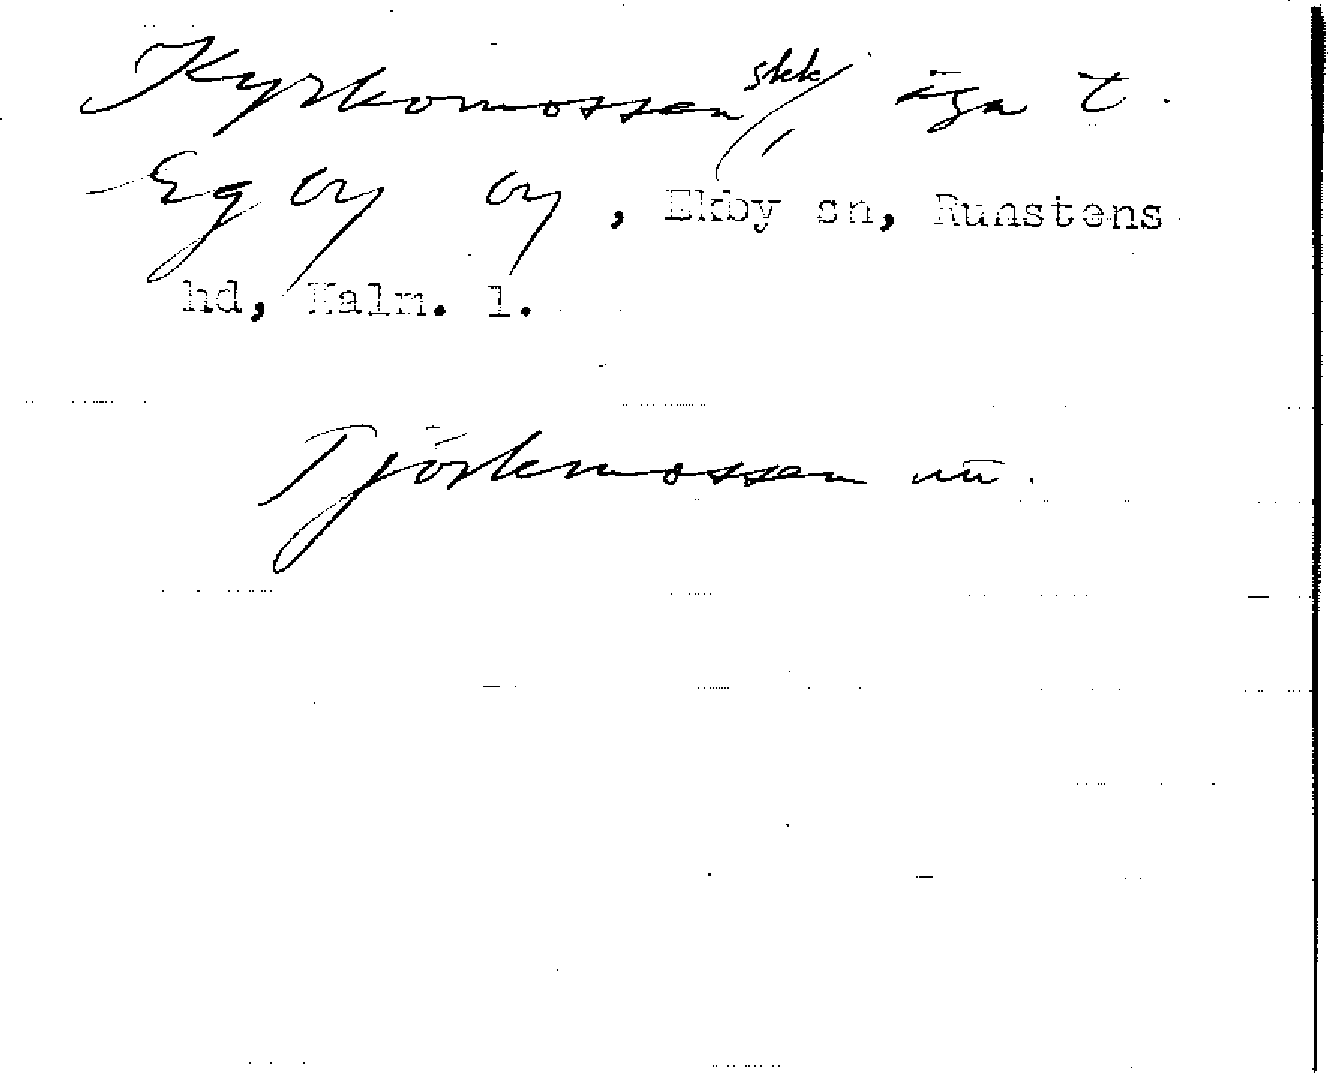 Kyrkomossen skk, äga t.
Egby by, Ekby sn, Runstens
hd, Kalm. l.
Tjörkmossen